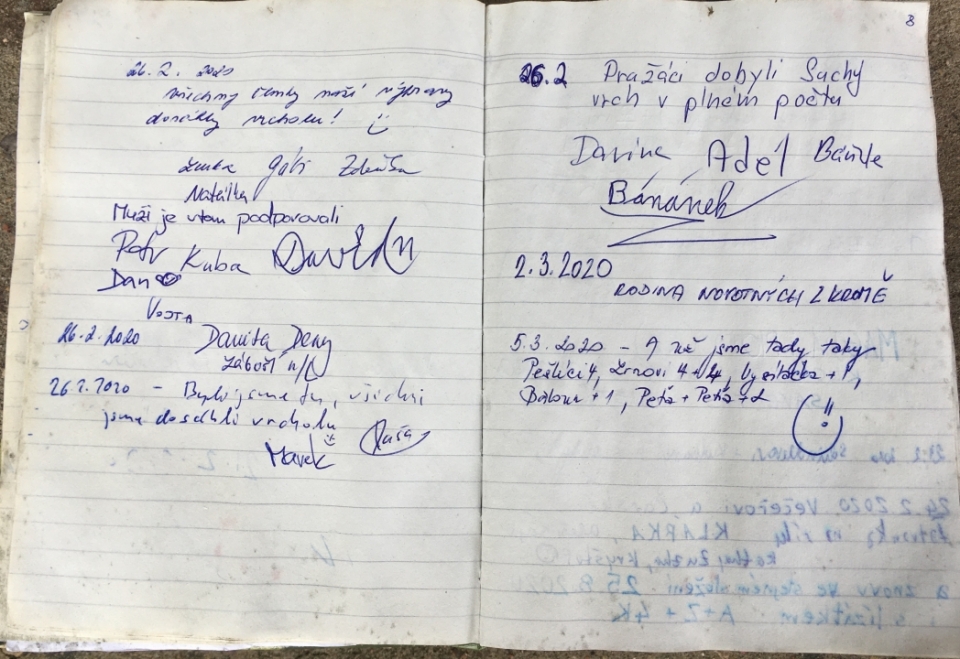 26.2. 2020
všechny členky naší výpravy
dosáhly vrcholu!
Lenka Gábi Zdeňka
Natálka
Muži je v tom podporovali
Petr Kuba David
Dan
VOJTA
26.2.2020 Danita Deny
Záboří n/L
26.2.2020 - Byli jsme tu, všichni
jsme dosáhli vrcholu
Marek
8
26.2 Pražáci dobyli Suchý
vrch v plném počtu
Darina Aděl
Banánek
2.3.2020
RODINA NOVOTNÝCH Z KROMĚ
5.3.2020 - A my jsme tady taky
4, 4+4, +1,
+1, Peťa + Peťa +2
24.2.2020 Večeřovi a
KLARKA,
a znovu ve stejném složení 25.8.202
A+Z+4K